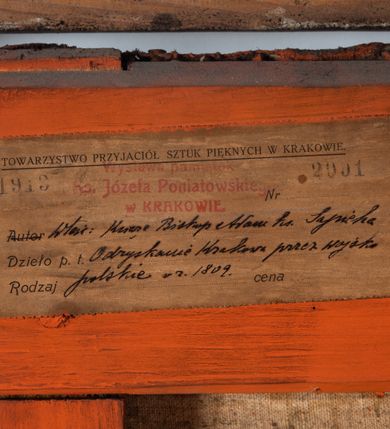 TOWARZYSTWO PRZYJACIÓŁ SZTUK PIĘKNYCH W KRAKOWIE.
Wystawa pamiątek
1913 ks. Józefa Poniatowskie Nr 2001
W KRAKOWIE.
Autor Właś: Książe Biskup Adam ks. Sapieha
Dzieło p. t. Odzyskanie Krakowa przez wojsko
Rodzaj polskie w r. 1809. cena